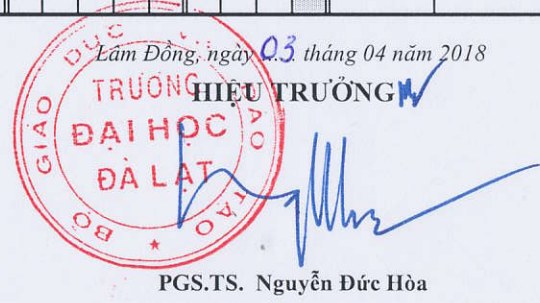 Lâm Đồng, ngày 03 tháng 04 năm 2018
HIỆU TRƯỞNG
BỘ GIÁO DỤC VÀ ĐÀO TẠO
TRƯỜNG
ĐẠI HỌC
ĐÀ LẠT
PGS.TS. Nguyễn Đức Hòa